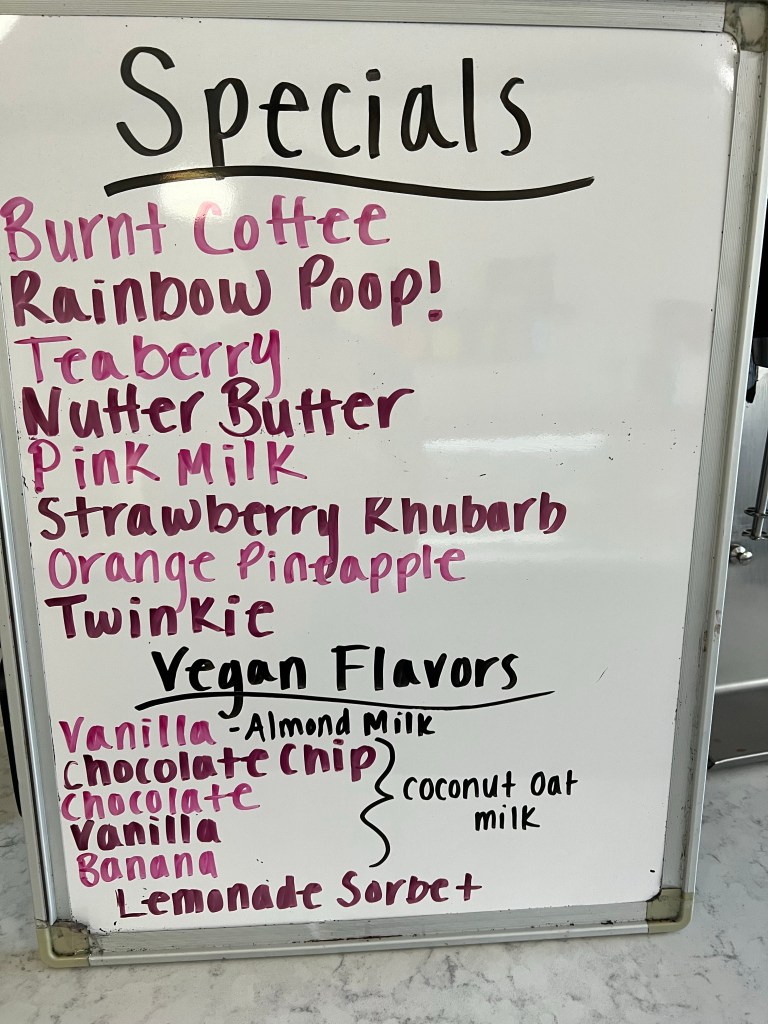 Specials
Burnt Coffee
Rainbow Poop!
Teaberry
Nutter Butter
Pink Milk
Strawberry Rhubarb
Orange Pineapple
Twinkie
Vegan Flavors
Vanilla - Almond Milk
Chocolate Chip
Chocolate
Vanilla
Banana
coconut oat
milk
Lemonade Sorbet